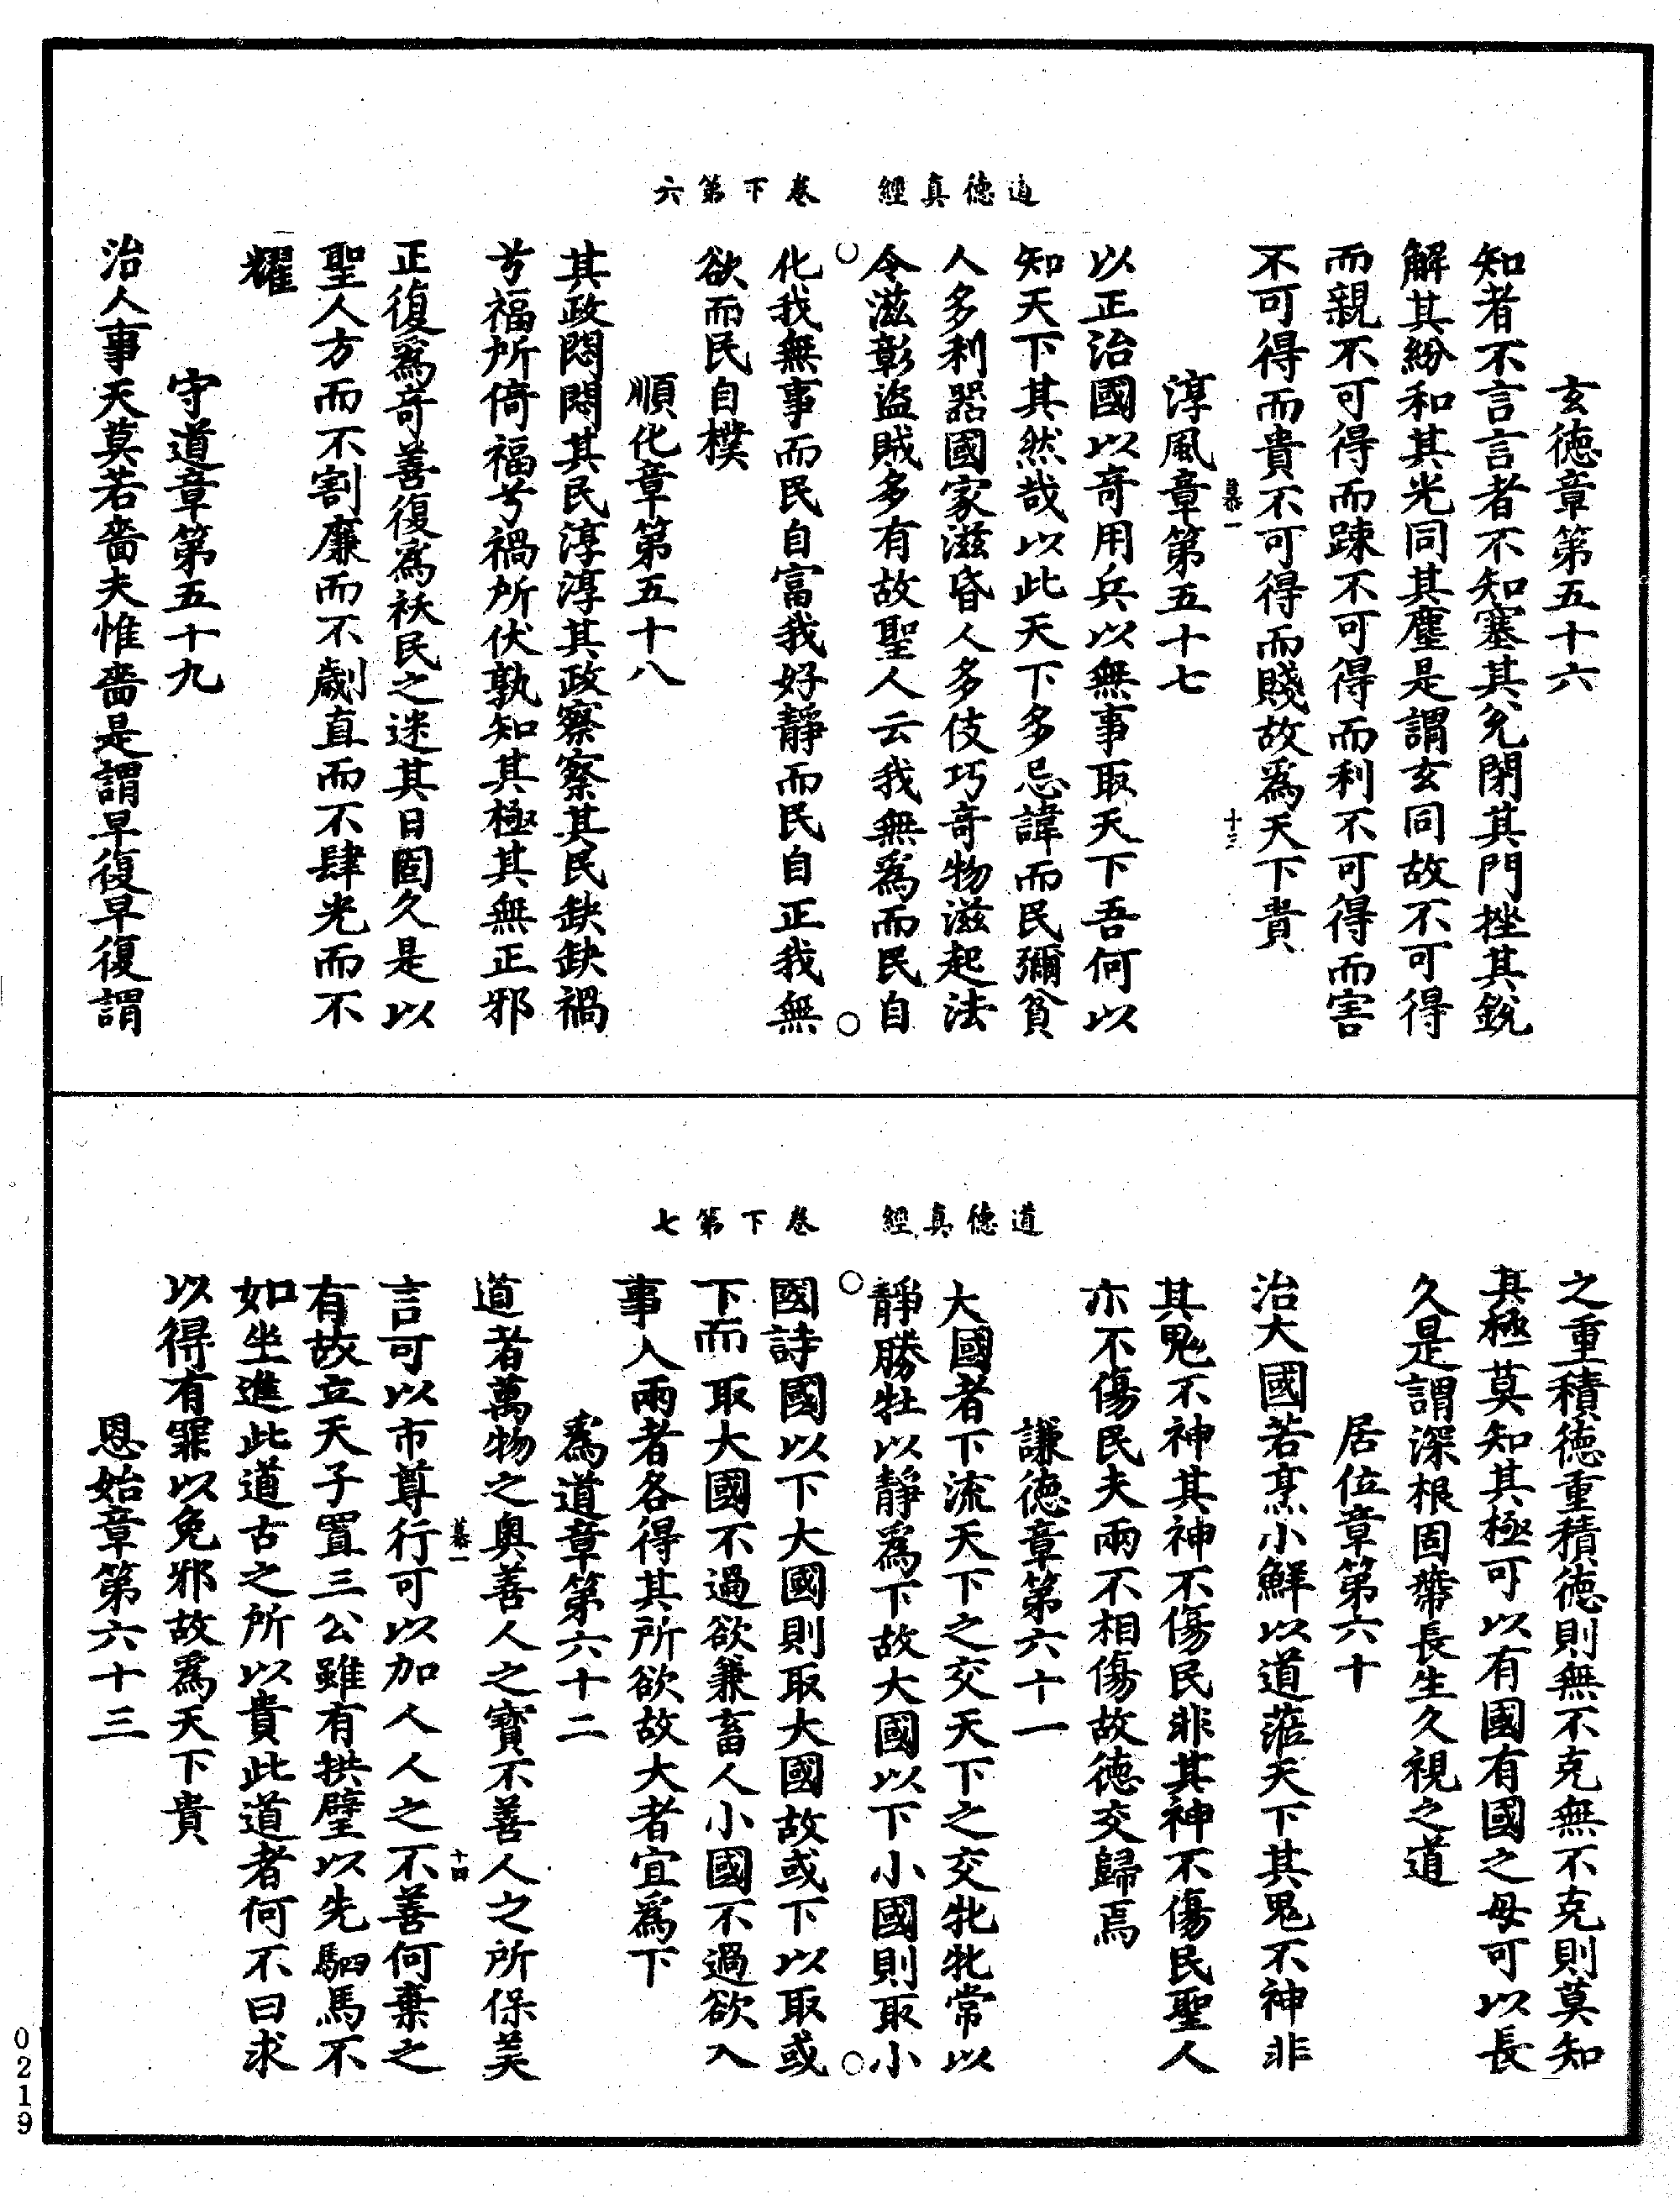 道德真經　卷下第六
玄德章第五十六
知者不言言者不知塞其兌閉其門挫其銳
解其紛和其光同其塵是謂玄同故不可得
而親不可得而踈不可得而利不可得而害
不可得而貴不可得而賤故爲天下貴
慕一　十三
淳風章第五十七
以正治國以奇用兵以無事取天下吾何以
知天下其然哉以此天下多忌諱而民彌貧
人多利器國家滋昏人多伎巧奇物滋起法
令滋彰盜賊多有故聖人云我無爲而民自
化我無事而民自富我好靜而民自正我無
欲而民自樸
順化章第五十八
其政悶悶其民淳淳其政察察其民缺缺禍
兮福所倚福兮禍所伏孰知其極其無正邪
正復爲奇善復爲祅民之迷其日固久是以
聖人方而不割廉而不劌直而不肆光而不
耀
守道章第五十九
治人事天莫若嗇夫惟嗇是謂早復早復謂
道德真經　卷下第七
之重積德重積德則無不克無不克則莫知
其極莫知其極可以有國有國之母可以長
久是謂深根固蔕長生久視之道
居位章第六十
治大國若烹小鮮以道蒞天下其鬼不神非
其鬼不神其神不傷民非其神不傷民聖人
亦不傷民夫兩不相傷故德交歸焉
謙德章第六十一
大國者下流天下之交天下之交牝牝常以
靜勝牡以靜爲下故大國以下小國則取小
國詩國以下大國則取大國故或下以取或
下而取大國不過欲兼畜人小國不過欲入
事人兩者各得其所欲故大者宜爲下
爲道章第六十二
道者萬物之奧善人之寶不善人之所保美
慕一　十四
言可以市尊行可以加人人之不善何棄之
有故立天子置三公雖有拱璧以先駟馬不
如坐進此道古之所以貴此道者何不曰求
以得有罪以免邪故爲天下貴
恩始章第六十三
0219